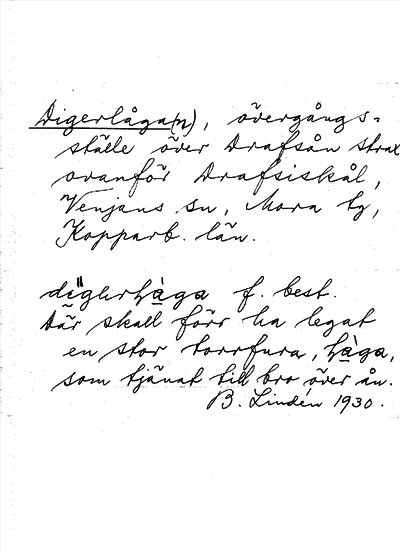 Digerlåga(n), övergångs-
ställe över Drafsån strax
ovanför Drafsiskål,
Venjans sn, Mora tg,
Kopparb. län.
f. best.
där skall förr ha legat
en stor torrfura,
som tjänat till bro över ån.
B. Lindén 1930.